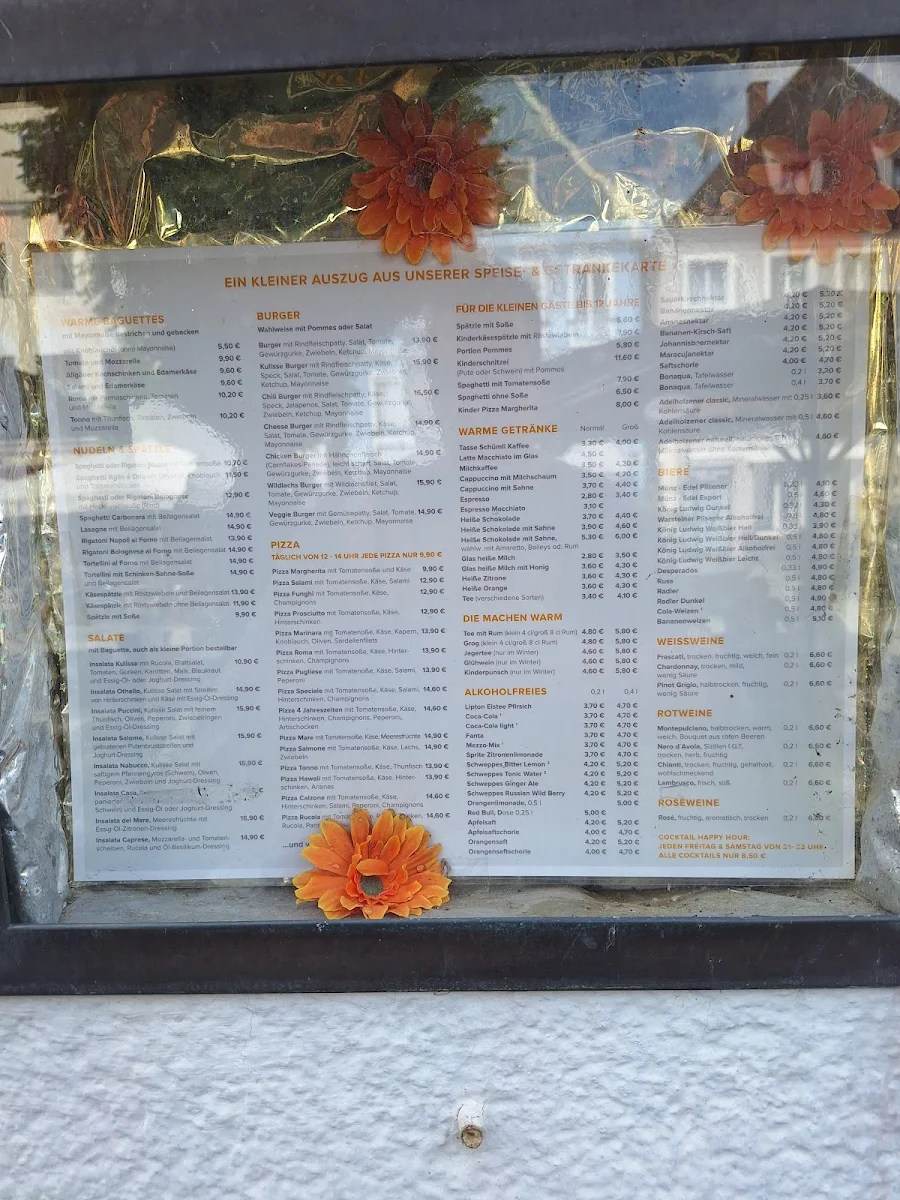 EIN KLEINER AUSZUG AUS UNSERER SPEISE- & GETRÄNKEKARTE
WARME BAGUETTES
mit Mayonnaise bestrichen und gebacken
Knoblauch (ohne Mayonnaise) 5,50 €
Tomate und Mozzarella 9,90 €
Allgäuer Kochschinken und Edamerkäse 9,60 €
Salami und Edamerkäse 9,60 €
10,20 €
Tonno mit Thunfisch, Tomaten, Zwiebeln 10,20 €
und Mozzarella
NUDELN & SPÄTZLE
Spaghetti oder Rigatoni Napoli mit Tomatensoße 10,70 €
Spaghetti Aglio e Olio 11,50 €
Spaghetti oder Rigatoni Bolognese 12,90 €
Spaghetti Carbonara mit Beilagensalat 14,90 €
Lasagne mit Beilagensalat 14,90 €
Rigatoni Napoli al Forno mit Beilagensalat 13,90 €
Rigatoni Bolognese al Forno mit Beilagensalat 14,90 €
Tortellini al Forno mit Beilagensalat 14,90 €
Tortellini mit Schinken-Sahne-Soße 14,90 €
und Beilagensalat
Käsespätzle mit Röstzwiebeln und Beilagensalat 13,90 €
Käsespätzle mit Röstzwiebeln ohne Beilagensalat 11,90 €
Spätzle mit Soße 9,90 €
SALATE
mit Baguette, auch als kleine Portion bestellbar
Insalata Kulisse mit Rucola, Blattsalat, 10,90 €
Tomaten, Gurken, Karotten, Mais, Blaukraut
und Essig-Öl- oder Joghurt-Dressing
Insalata Othello, Kulisse Salat mit Streifen 14,90 €
von Hinterschinken und Käse mit Essig-Öl-Dressing
Insalata Puccini, Kulisse Salat mit feinem 15,90 €
Thunfisch, Oliven, Peperoni, Zwiebelringen
und Essig-Öl-Dressing
Insalata Salome, Kulisse Salat mit 15,90 €
gebratenen Putenbruststreifen und
Joghurt-Dressing
Insalata Nabucco, Kulisse Salat mit
saftigen Pfannengyros (Schwein), Oliven,
Peperoni, Zwiebeln und Joghurt-Dressing
Insalata Casa,
Schwein) und Essig-Öl oder Joghurt-Dressing
Insalata del Mare, Meeresfrüchte mit 16,90 €
Essig-Öl-Zitronen-Dressing
Insalata Caprese, Mozzarella- und Tomaten- 14,90 €
scheiben, Rucola und Öl-Basilikum-Dressing
BURGER
Wahlweise mit Pommes oder Salat
Burger mit Rindfleischpatty, Salat, Tomate, 13,90 €
Gewürzgurke, Zwiebeln, Ketchup, Mayonnaise
Kulisse Burger mit Rindfleischpatty, Käse, 15,90 €
Speck, Salat, Tomate, Gewürzgurke, Zwiebeln,
Ketchup, Mayonnaise
Chili Burger mit Rindfleischpatty, Käse, 16,50 €
Speck, Jalapenos, Salat, Tomate, Gewürzgurke,
Zwiebeln, Ketchup, Mayonnaise
Cheese Burger mit Rindfleischpatty, Käse, 14,90 €
Salat, Tomate, Gewürzgurke, Zwiebeln, Ketchup,
Mayonnaise
Chicken Burger mit Hähnchenfleisch 14,90 €
(Cornflakes-Panade), leicht scharf, Salat, Tomate,
Gewürzgurke, Zwiebeln, Ketchup, Mayonnaise
Wildlachs Burger mit Wildlachsfilet, Salat, 15,90 €
Tomate, Gewürzgurke, Zwiebeln, Ketchup,
Mayonnaise
Veggie Burger mit Gemüsepatty, Salat, Tomate, 14,90 €
Gewürzgurke, Zwiebeln, Ketchup, Mayonnaise
PIZZA
TÄGLICH VON 12 - 14 UHR JEDE PIZZA NUR 9,90 €
Pizza Margherita mit Tomatensoße und Käse 9,90 €
Pizza Salami mit Tomatensoße, Käse, Salami 12,90 €
Pizza Funghi mit Tomatensoße, Käse, 12,90 €
Champignons
Pizza Prosciutto mit Tomatensoße, Käse, 12,90 €
Hinterschinken
Pizza Marinara mit Tomatensoße, Käse, Kapern, 13,90 €
Knoblauch, Oliven, Sardellenfilets
Pizza Roma mit Tomatensoße, Käse, Hinter- 13,90 €
schinken, Champignons
Pizza Pugliese mit Tomatensoße, Käse, Salami, 13,90 €
Peperoni
Pizza Speciale mit Tomatensoße, Käse, Salami, 14,60 €
Hinterschinken, Champignons
Pizza 4 Jahreszeiten mit Tomatensoße, Käse, 14,60 €
Hinterschinken, Champignons, Peperoni,
Artischocken
Pizza Mare mit Tomatensoße, Käse, Meeresfrüchte 14,90 €
Pizza Salmone mit Tomatensoße, Käse, Lachs, 14,90 €
Zwiebeln
Pizza Tonno mit Tomatensoße, Käse, Thunfisch 13,90 €
Pizza Hawaii mit Tomatensoße, Käse, Hinter- 13,90 €
schinken, Ananas
Pizza Calzone mit Tomatensoße, Käse, 14,60 €
Hinterschinken, Salami, Peperoni, Champignons
Pizza Rucola 14,60 €
Rucola,
...und
FÜR DIE KLEINEN GÄSTE BIS 12 JAHRE
Spätzle mit Soße 5,60 €
Kinderkäsespätzle mit Röstzwiebeln 7,90 €
Portion Pommes 5,80 €
Kinderschnitzel 11,60 €
(Pute oder Schwein) mit Pommes
Spaghetti mit Tomatensoße 7,90 €
Spaghetti ohne Soße 6,50 €
Kinder Pizza Margherita 8,00 €
WARME GETRÄNKE Normal Groß
Tasse Schümli Kaffee 3,30 € 4,00 €
Latte Macchiato im Glas 4,50 €
Milchkaffee 3,50 € 4,20 €
Cappuccino mit Milchschaum 3,50 € 4,20 €
Cappuccino mit Sahne 3,70 € 4,40 €
Espresso 2,80 € 3,40 €
Espresso Macchiato 3,10 €
Heiße Schokolade 3,70 € 4,40 €
Heiße Schokolade mit Sahne 3,90 € 4,60 €
Heiße Schokolade mit Sahne, 5,30 € 6,00 €
wahlw. mit Amaretto, Baileys od. Rum
Glas heiße Milch 2,80 € 3,50 €
Glas heiße Milch mit Honig 3,60 € 4,30 €
Heiße Zitrone 3,60 € 4,30 €
Heiße Orange 3,60 € 4,30 €
Tee (verschiedene Sorten) 3,40 € 4,10 €
DIE MACHEN WARM
Tee mit Rum (klein 4 cl/groß 8 cl Rum) 4,80 € 5,80 €
Grog (klein 4 cl/groß 8 cl Rum) 4,80 € 5,80 €
Jagertee (nur im Winter) 4,60 € 5,80 €
Glühwein (nur im Winter) 4,60 € 5,80 €
Kinderpunsch (nur im Winter) 4,60 € 5,80 €
ALKOHOLFREIES 0,2 l 0,4 l
Lipton Eistee Pfirsich 3,70 € 4,70 €
Coca-Cola ¹ 3,70 € 4,70 €
Coca-Cola light ¹ 3,70 € 4,70 €
Fanta 3,70 € 4,70 €
Mezzo-Mix ¹ 3,70 € 4,70 €
Sprite Zitronenlimonade 3,70 € 4,70 €
Schweppes Bitter Lemon ² 4,20 € 5,20 €
Schweppes Tonic Water ² 4,20 € 5,20 €
Schweppes Ginger Ale 4,20 € 5,20 €
Schweppes Russian Wild Berry 4,20 € 5,20 €
Orangenlimonade, 0,5 l 5,00 €
Red Bull, Dose 0,25 l 5,00 €
Apfelsaft 4,20 € 5,20 €
Apfelsaftschorle 4,00 € 4,70 €
Orangensaft 4,20 € 5,20 €
Orangensaftschorle 4,00 € 4,70 €
Sauerkirschnektar 4,20 € 5,20 €
Bananennektar 4,20 € 5,20 €
Ananasnektar 4,20 € 5,20 €
Bananen-Kirsch-Saft 4,20 € 5,20 €
Johannisbeernektar 4,20 € 5,20 €
Maracujanektar 4,20 € 5,20 €
Saftschorle 4,00 € 4,70 €
Bonaqua, Tafelwasser 0,2 l 3,20 €
Bonaqua, Tafelwasser 0,4 l 3,70 €
Adelholzener classic, Mineralwasser mit 0,25 l 3,60 €
Kohlensäure
Adelholzener classic, Mineralwasser mit 0,5 l 4,60 €
Kohlensäure
Adelholzener naturell 4,60 €
Mineralwasser ohne Kohlensäure
BIERE
Münz - Edel Pilsener 4,10 €
Münz - Edel Export 4,60 €
König Ludwig Dunkel 4,30 €
Warsteiner Pilsener Alkoholfrei 4,80 €
König Ludwig Weißbier Hell 3,90 €
König Ludwig Weißbier Hell/Dunkel 0,5 l 4,60 €
König Ludwig Weißbier Alkoholfrei 0,5 l 4,80 €
König Ludwig Weißbier Leicht 0,5 l 4,80 €
Desperados 0,33 l 4,90 €
Russ 0,5 l 4,80 €
Radler 0,5 l 4,60 €
Radler Dunkel 0,5 l 4,90 €
Cola-Weizen ¹ 0,5 l 4,80 €
Bananenweizen 0,5 l 5,10 €
WEISSWEINE
Frascati, trocken, fruchtig, weich, fein 0,2 l 6,60 €
Chardonnay, trocken, mild, 0,2 l 6,60 €
wenig Säure
Pinot Grigio, halbtrocken, fruchtig, 0,2 l 6,60 €
wenig Säure
ROTWEINE
Montepulciano, halbtrocken, warm, 0,2 l 6,60 €
weich, Bouquet aus roten Beeren
Nero d'Avola, Sizilien I.G.T., 0,2 l 6,60 €
trocken, herb, fruchtig
Chianti, trocken, fruchtig, gehaltvoll, 0,2 l 6,60 €
wohlschmeckend
Lambrusco, frisch, süß 0,2 l 6,60 €
ROSÉWEINE
Rosé, fruchtig, aromatisch, trocken 0,2 l 6,60 €
COCKTAIL HAPPY HOUR:
JEDEN FREITAG & SAMSTAG VON 21- 22 UHR
ALLE COCKTAILS NUR 8,50 €